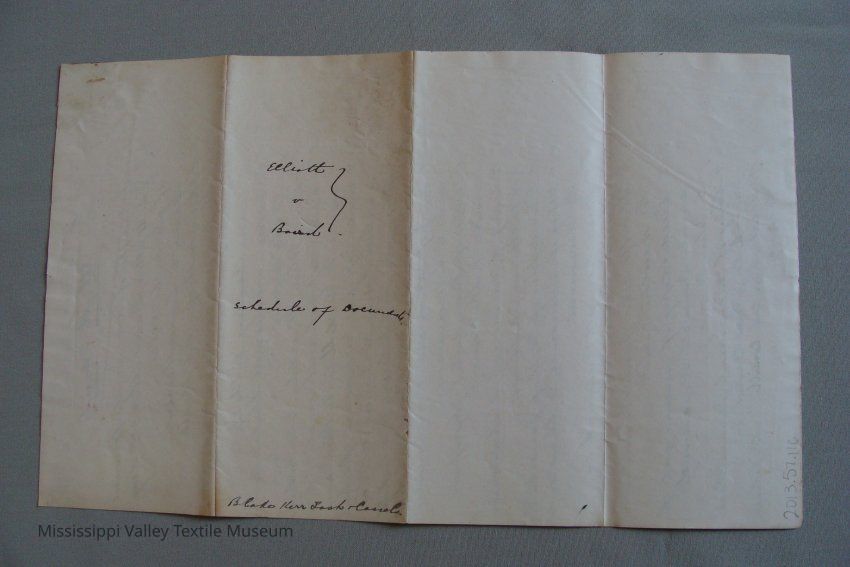 Elliott
v
Baird.
Schedule of Documents
Blake Kerr Lash & Cassels
2013.57.116
Mississippi Valley Textile Museum